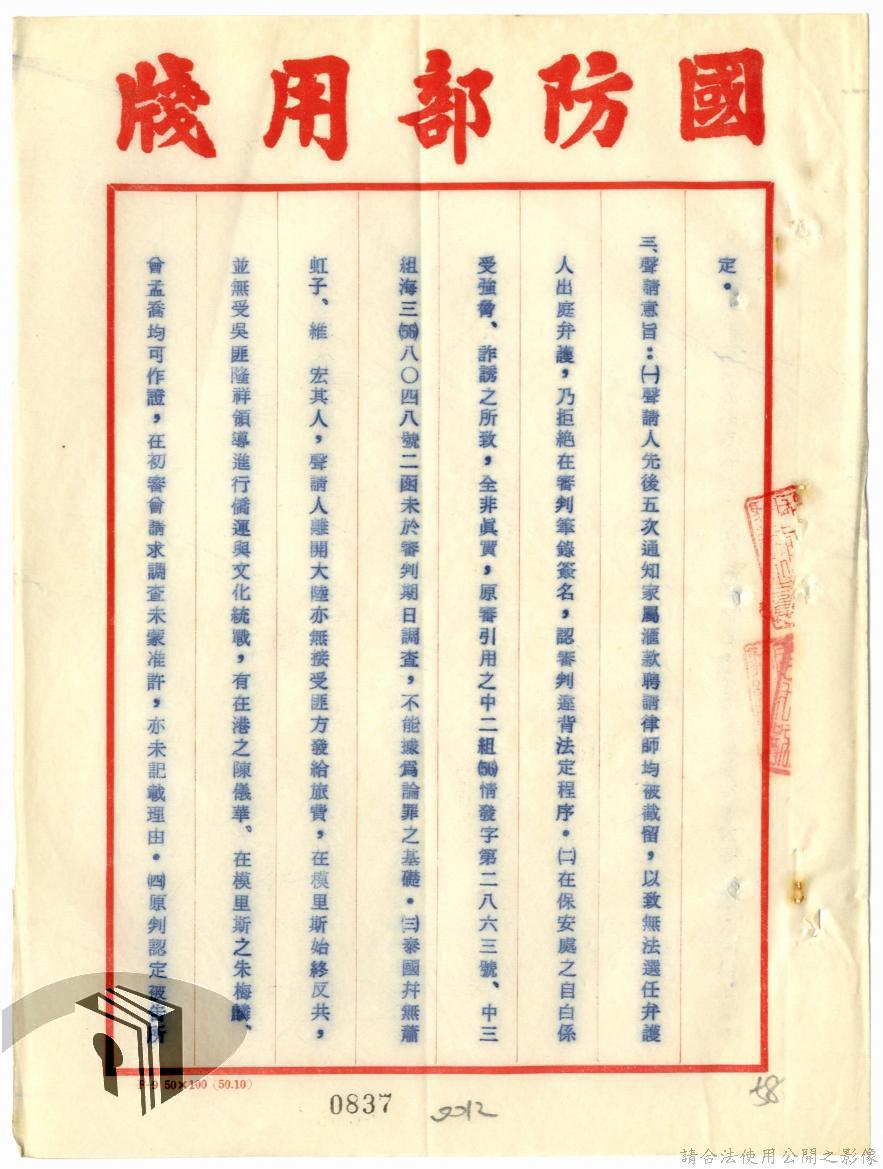 國防部用牋
定。
三、聲請意旨：㈠聲請人先後五次通知家屬滙款聘請律師均被截留，以致無法選任弁護
人出庭弁護，乃拒絕在審判筆錄簽名，認審判違背法定程序。㈡在保安處之自白係
受強脅、詐誘之所致，全非眞實，原審引用之中二組(56)情發字第二八六三號、中三
組海三(56)八〇四八號二函未於審判期日調查，不能據爲論罪之基礎。㈢泰國幷無蕭
虹子、維　宏其人，聲請人離開大陸亦無接受匪方發給旅費，在模里斯始終反共，
並無受吳匪隆祥領導進行僑運與文化統戰，有在港之陳儀華、在模里斯之朱梅麟、
曾孟喬均可作證，在初審曾請求調查未蒙准許，亦未記載理由。㈣原判認定被告所
F-9 50×100 (50.10)
0837
2012
58
請合法使用公開之影像